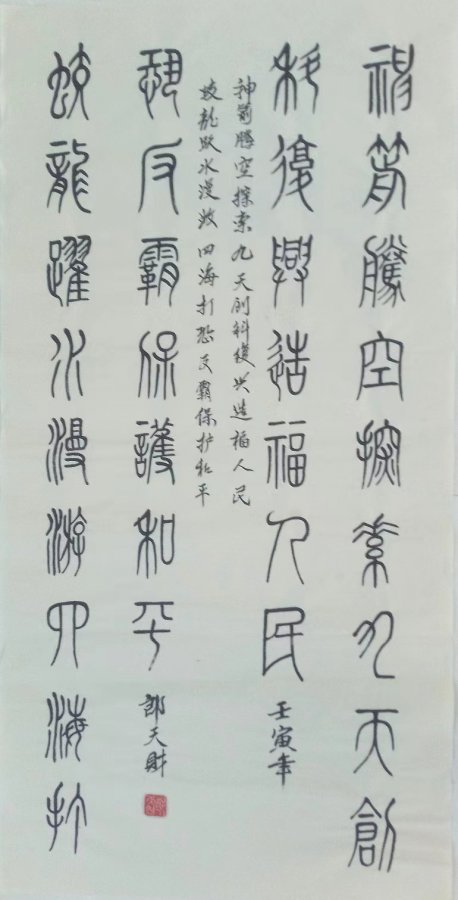 神箭騰空探索九天創
科復興造福人民
壬寅年
神箭腾空探索九天创科復兴造福人民
蛟龙跃水漫游四海打恐反霸保护和平
蛟龍躍水漫游四海打
恐反霸保護和平
天財